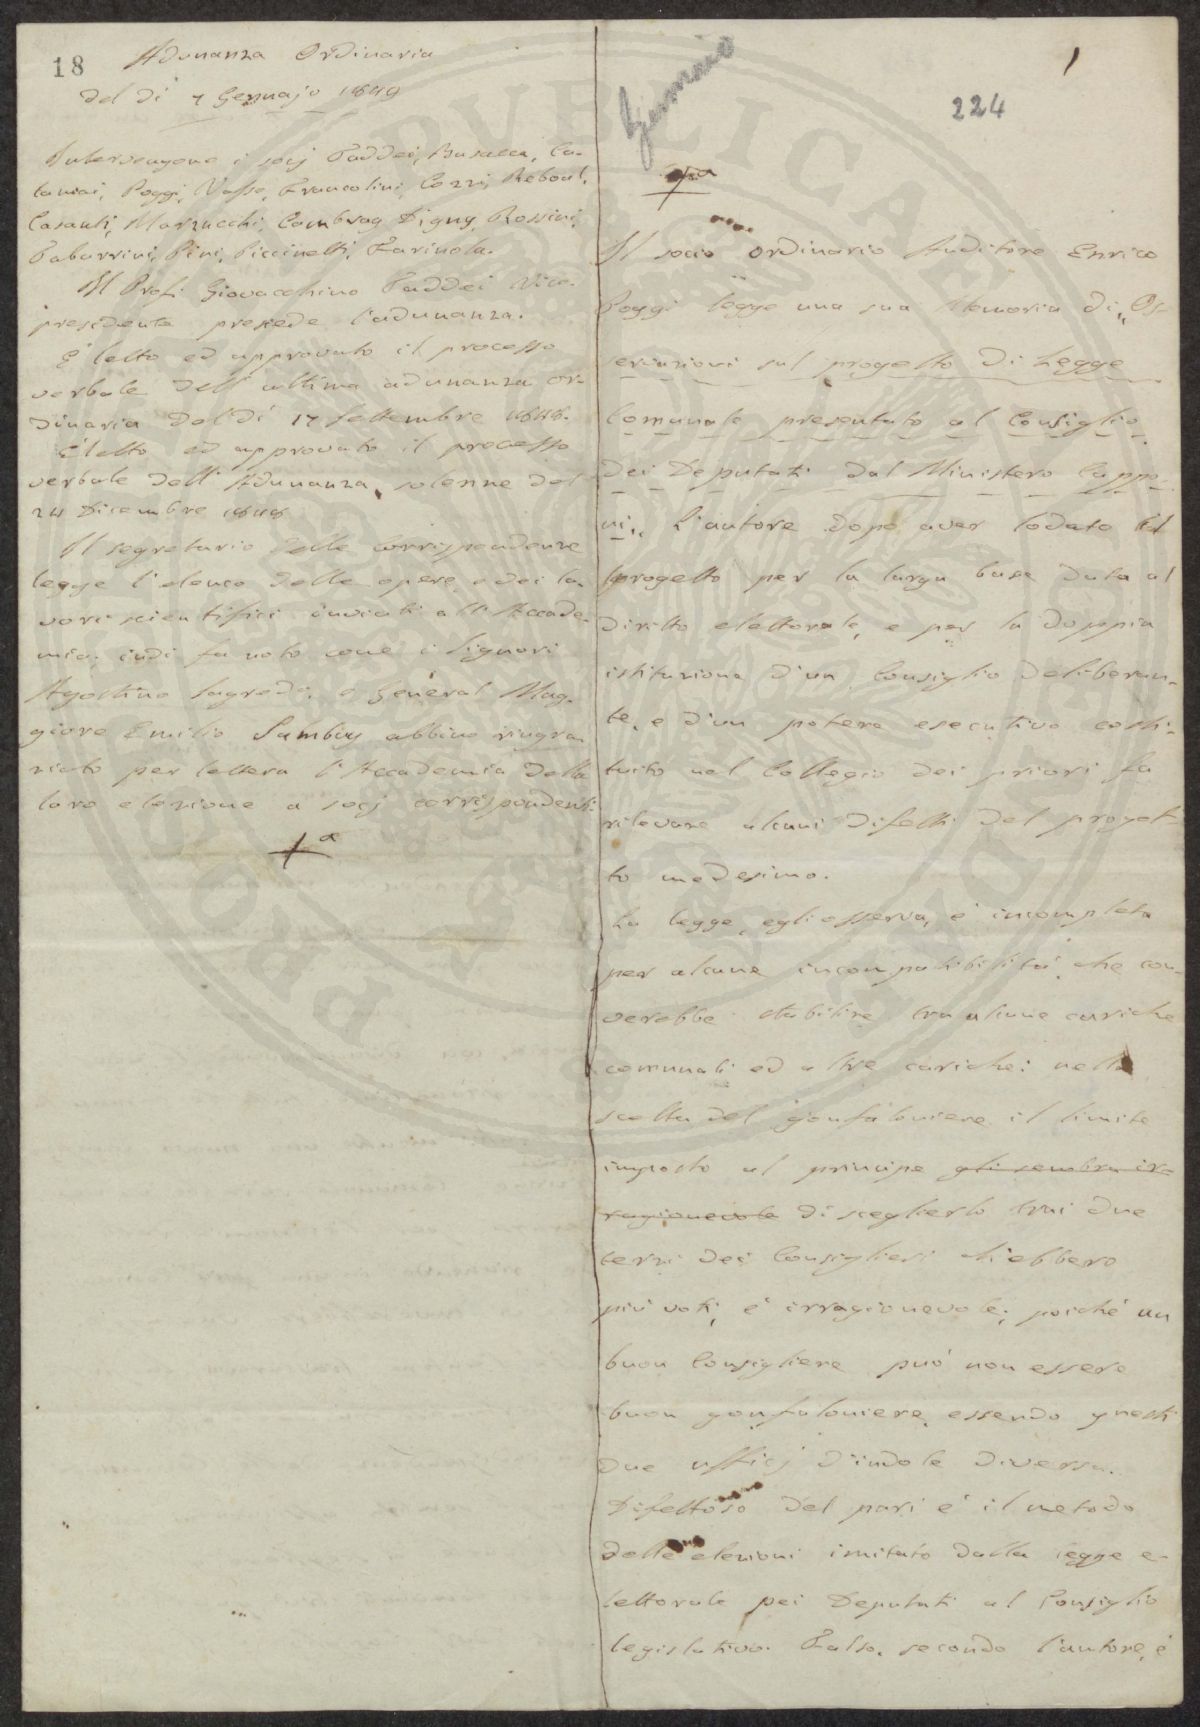 18
Adunanza Ordinaria
del dì 7 Gennajo 1849
Intervengono i socj Taddei, Busacca, Ca-
tanzai, Poggi, Nasso, Francolini, Cozzi, Reboul,
Casanti, Marzucchi, Cambray Digny, Rossini,
Tabarrini, Pini, Piccinetti, Farinola.
Il Prof. Giovacchino Taddei Vice-
presidente presiede l'adunanza.
È letto ed approvato il processo
verbale dell'ultima adunanza or-
dinaria del dì 17 Settembre 1848.
È letto ed approvato il processo
verbale dell'Adunanza solenne del
24 Dicembre 1848
Il segretario delle Corrispondenze
legge l'elenco delle opere, e dei la-
vori scientifici inviati all'Accade-
mia; indi fa noto come i Signori
Agostino Sagredo, e General Mag-
giore Emilio Sambuy abbino ringra-
ziato per lettera l'Accademia della
loro elezione a socj corrispondenti.
+a
Gennaio
1
224
+a
Il socio ordinario Auditore Enrico
Poggi legge una sua Memoria di „Os-
servazioni sul progetto di Legge
Comunale presentato al Consiglio
dei Deputati dal Ministero Cappo-
ni„ L'autore dopo aver lodato il
progetto per la larga base data al
diritto elettorale, e per la doppia
istituzione d'un Consiglio deliberan-
te, e d'un potere esecutivo costi-
tuito nel Collegio dei priori fa
rilevare alcuni difetti del proget-
to medesimo.
La legge, egli osserva, è incompleta
per alcune incompatibilità, che con-
verebbe stabilire tra alcune cariche
comunali ed altre cariche: nella
scelta del gonfaloniere il limite
imposto al principe gli sembra ir-
ragionevole di sceglierlo trai due
terzi dei Consiglieri ch'ebbero
più voti, è irragionevole; poiché un
buon Consigliere può non essere
buon gonfaloniere, essendo questi
due ufficj d'indole diversa.
Difettoso del pari è il metodo
delle elezioni imitato dalla legge e-
lettorale pei Deputati al Consiglio
legislativo. Falso, secondo l'autore, è